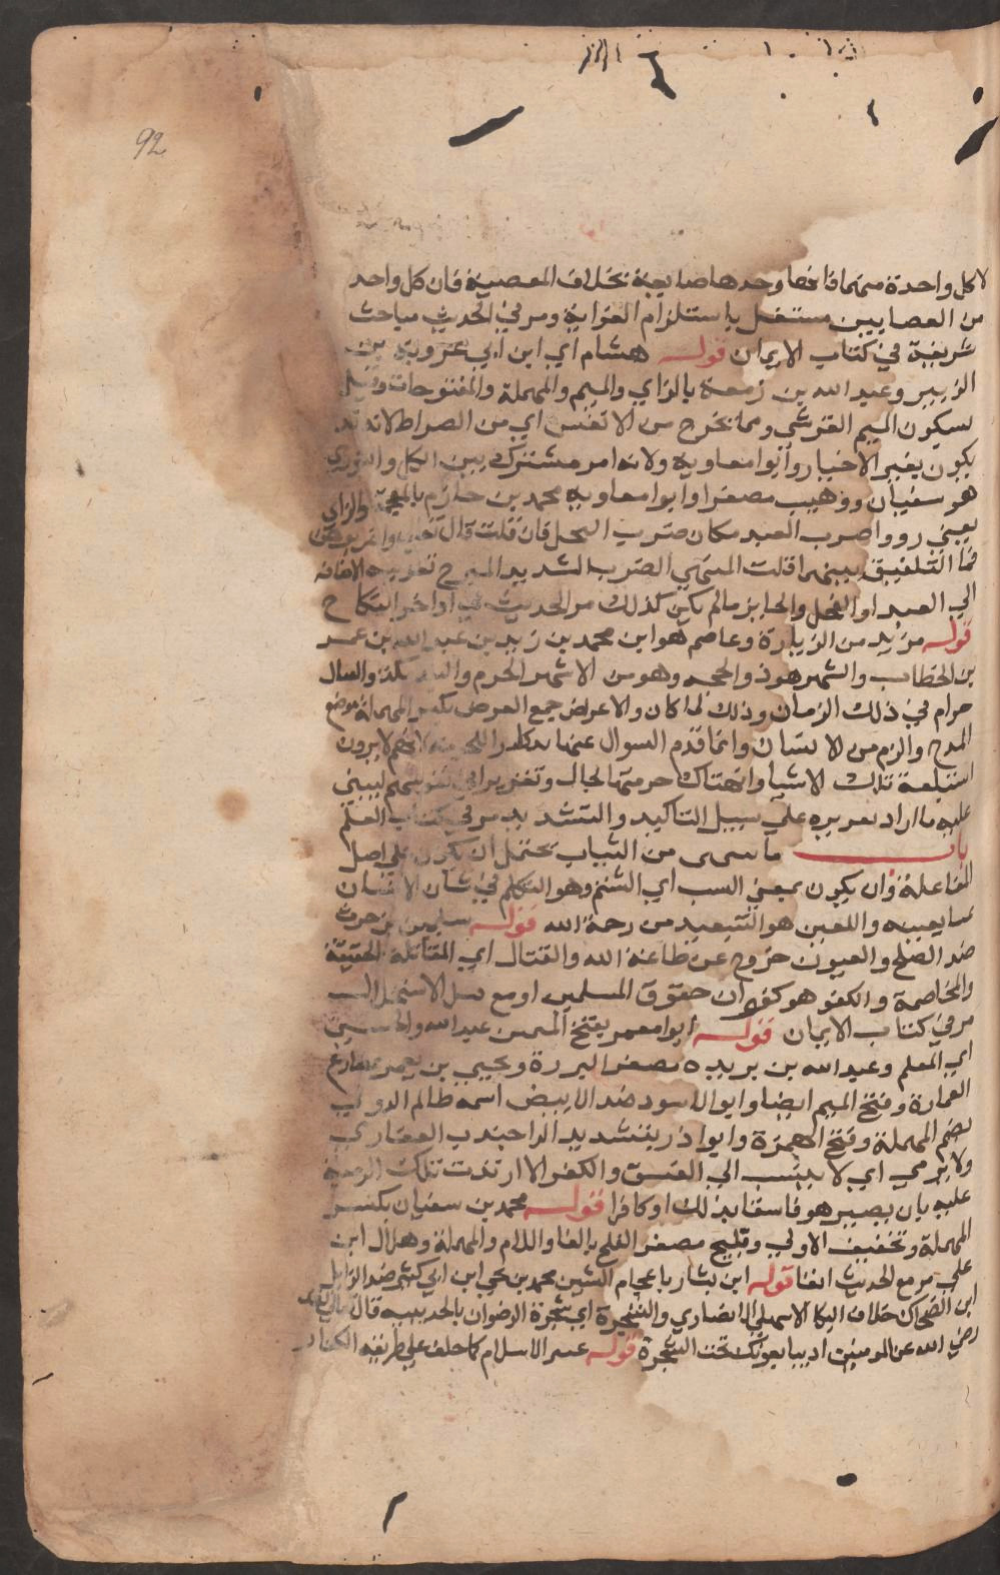 92
لا كل واحدة منهما فاذا خصا وجدها صابحة بخلاف المعصية فان كل واحد
من العصايين مستقل باستلزام الغواية ومر في الحديث مباحث
شريفة في كتاب الايمان قوله هشام اي ابن ابي عروة بن
الزبير وعبد الله بن زمعة بالزاي والميم والمهملة والمفتوحات وقيل
بسكون الميم القرشي ومما يخرج من الانفس اي من الصراط لانه قد
يكون بغير الاختيار ولانه امر مشترك بين الكل والثوري
هو سفيان ووهيب مصغرا وابو معاوية محمد بن خازم بالمعجمة والزاي
يعني رووا ضرب العبد مكان ضرب الفحل فان قلت قال تعالى واضربوهن
فما التلفيق بينهما قلت المنهي الضرب الشديد المبرح
الي العبد او الفحل والجايز مالم يكن كذلك مر الحديث في اواخر النكاح
قوله من زيد من الزيادة وعاصم هو ابن محمد بن زيد بن عبد الله بن عمر
بن الخطاب والشهر هو ذو الحجه وهو من الاشهر الحرم والبلد مكة والقتال
حرام في ذلك الزمان وذلك لما كان والاعراض جمع العرض بكسر المهملة موضع
المدح والذم من الانسان وانما قدم السوال عنها لانهم لا يرون
استباحة تلك الاشيا وانتهاك حرمتها بحال وتقريرا في نفوسهم ليبني
عليه ما اراد تقريره علي سبيل التاكيد والتشديد مر في كتاب العلم
باب ما ينهى من السباب يحتمل ان يكون علي اصل
المفاعلة وان يكون بمعني السب اي الشتم وهو التكلم في شان الانسان
بما يعيبه واللعن هو التبعيد من رحمة الله قوله سليمن بن حرب
ضد الصلح والفسوق خروج عن طاعة الله والقتال اي المقاتلة الحقيقة
والمخاصمة والكفر هو كفران حقوق المسلمين او مع
مر في كتاب الايمان قوله ابو معمر بفتح الميمين عبد الله والحسين
اي المعلم وعبد الله بن بريده مصغر البردة ويحيى بن يعمر مضارع
العمارة وفتح الميم ايضا وابو الاسود ضد الابيض اسمه ظالم الدولي
بضم المهملة وفتح الهمزة وابو ذر بتشديد الرا جندب الغفاري
ولا يرمي اي لا ينسب الي الفسق والكفر الا ارتدت تلك الرمية
عليه بان يصير هو فاسقا بذلك او كافرا قوله محمد بن سفيان بكسر
المهملة وتخفيف الاولي وفليح مصغر الفلح بالفا واللام والمهملة وهلال ابن
علي مر مع الحديث انفا قوله ابن بشار باعجام الشين محمد بن يحي ابن ابي كثير ضد القليل
ابن الضحاك خلاف البكا الاشهلي الانصاري والشجرة اي شجرة الرضوان بالحديبيه قال تعالى لقد
رضي الله عن المومنين اذ يبايعونك تحت الشجرة قوله غير الاسلام كما حلف علي طريقة الكفار